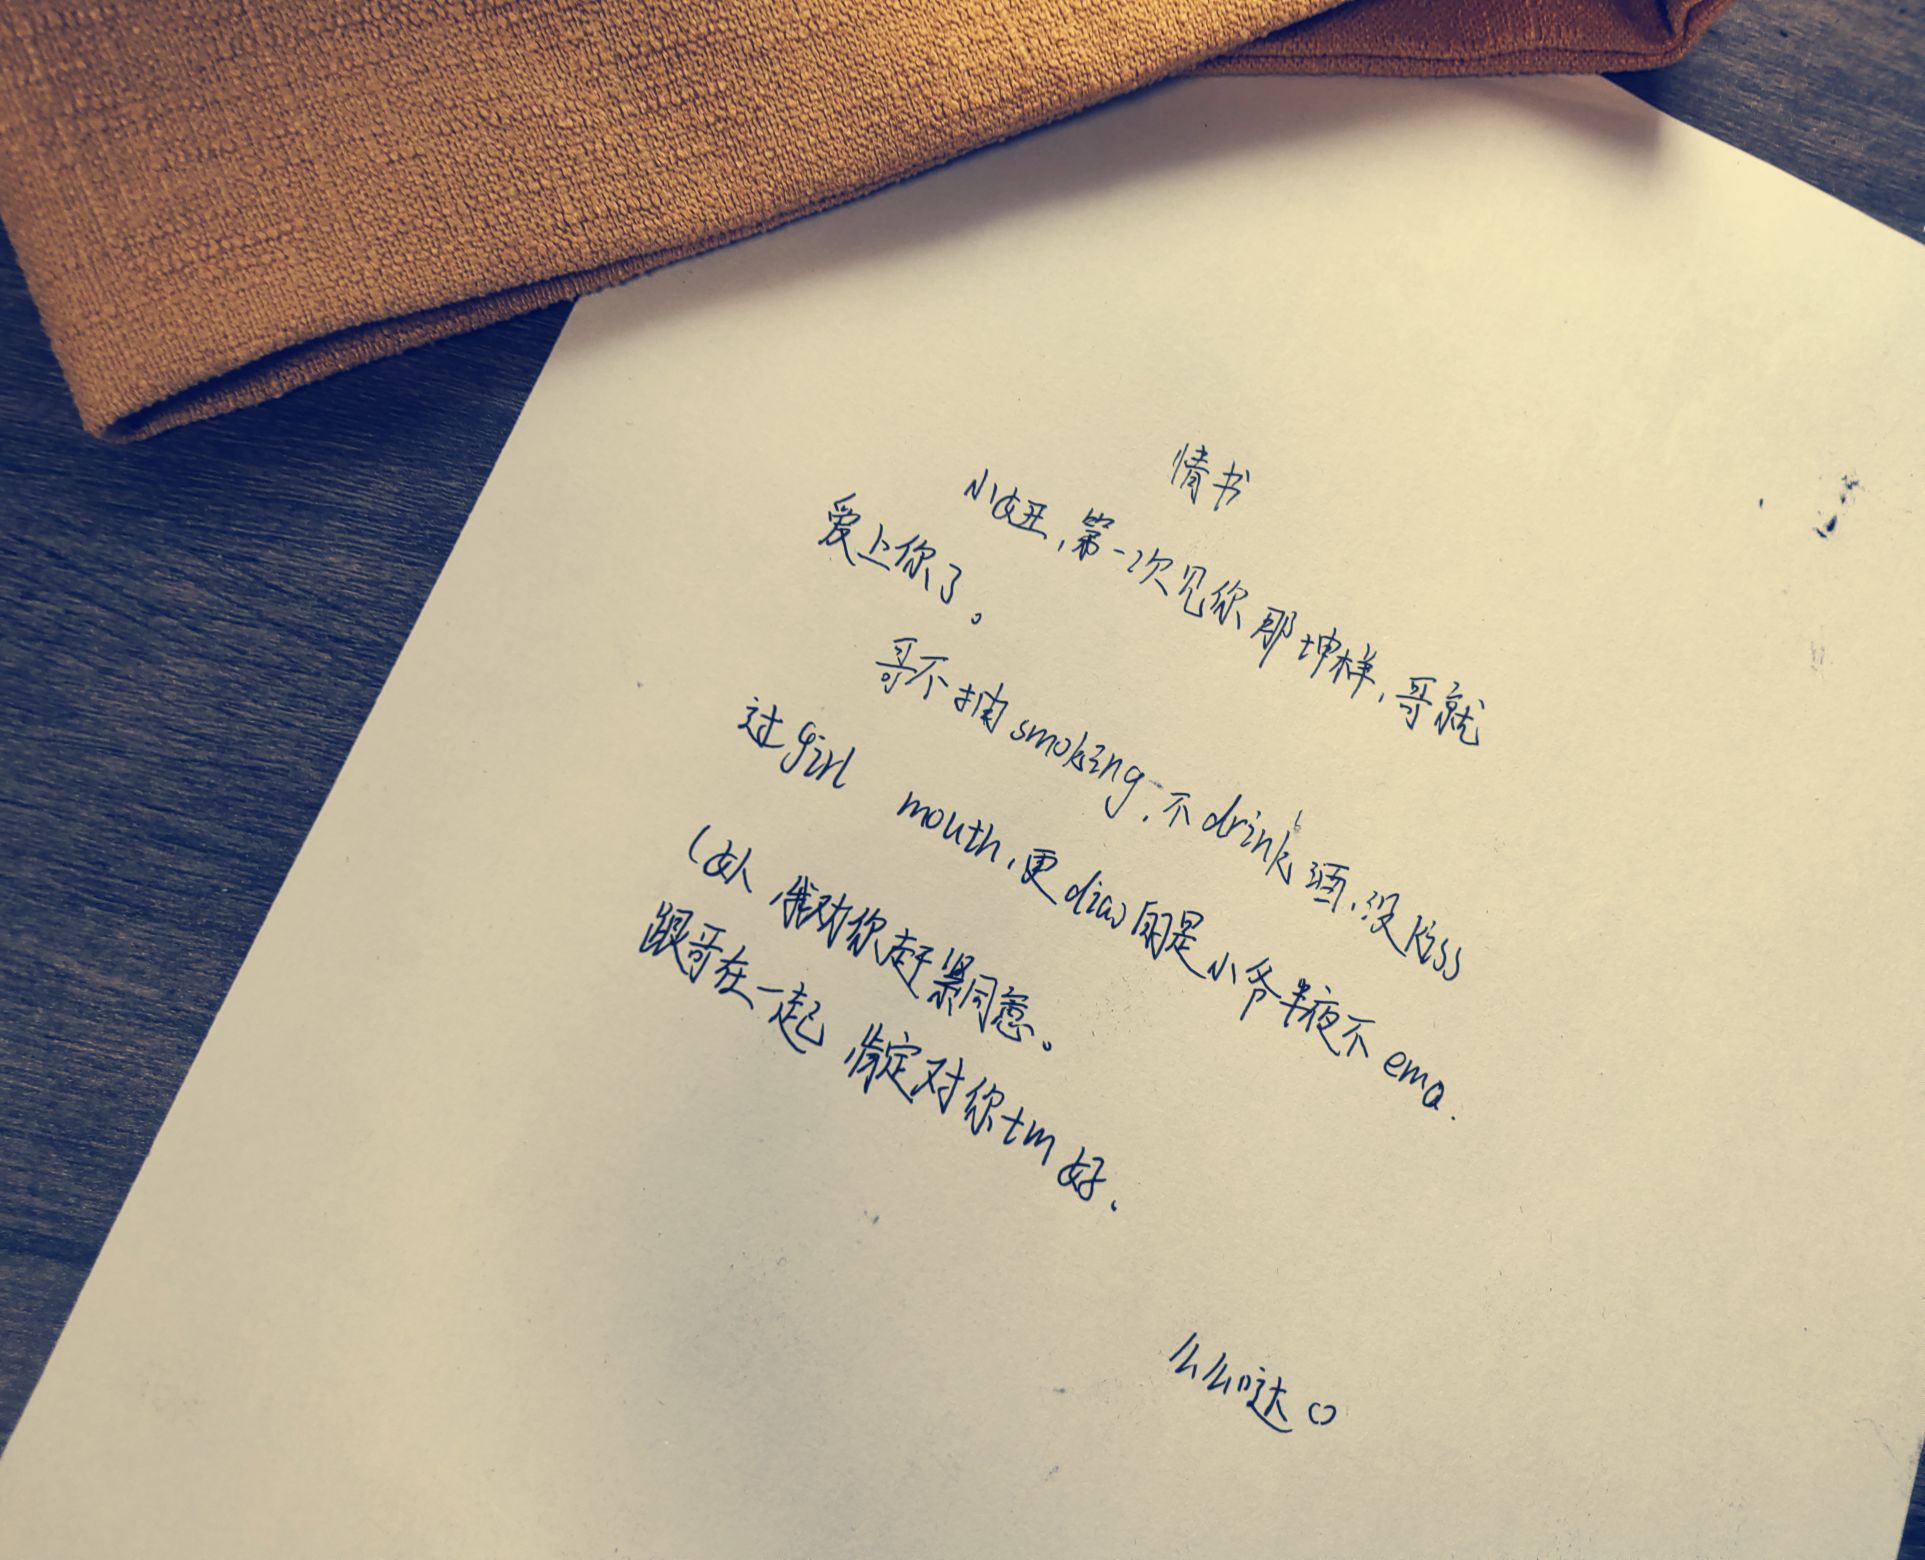 情书
小妞,第一次见你那坤样,哥就
爱上你了。
哥不抽smoking,不drink酒,没kiss
过girl mouth,更diao的是小爷半夜不emo.
你对你赶紧同意。
跟哥在一起 肯定对你tm好.
么么哒